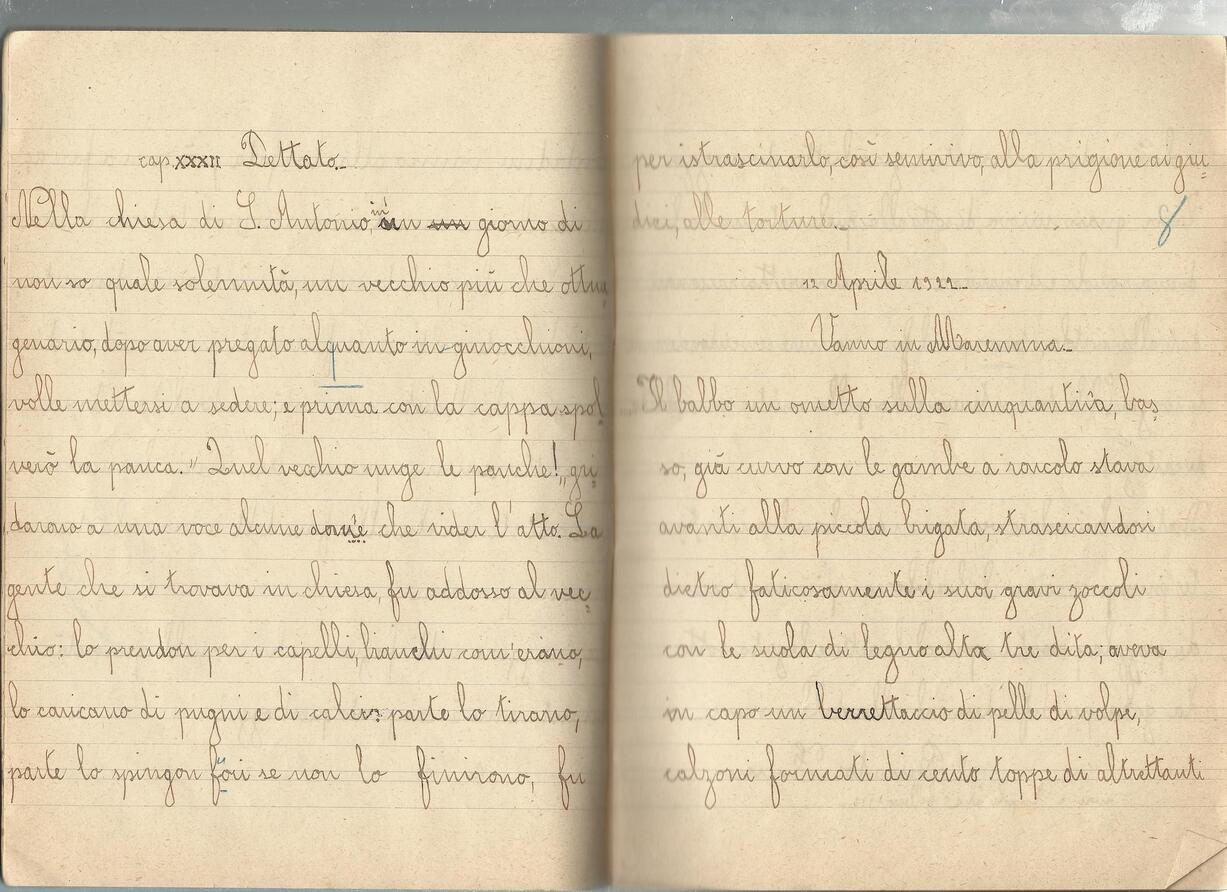 cap. XXXII Dettato.
Nella chiesa di S. Antonio, in un giorno di
non so quale solennità, un vecchio più che ottua
genario, dopo aver pregato alquanto in ginocchioni,
volle mettersi a sedere; e prima con la cappa spol
verò la panca. "Quel vecchio unge le panche!„ gri=
darono a una voce alcune donne che vider l'atto. La
gente che si trovava in chiesa, fu addosso al vec=
chio: lo prendon per i capelli, bianchi com'erano,
lo caricano di pugni e di calci: parte lo tirano,
parte lo spingon fori se non lo finirono, fu
per istrascinarlo, così semivivo, alla prigione ai giu=
dici, alle torture.
8
12 Aprile 1922.
Vanno in Maremma.
Il babbo un ometto sulla cinquantina, bas=
so, già curvo con le gambe a roncolo stava
avanti alla piccola brigata, strascicandosi
dietro faticosamente i suoi gravi zoccoli
con le suola di legno alta tre dita; aveva
in capo un berrettaccio di pelle di volpe,
calzoni formati di cento toppe di altrettanti